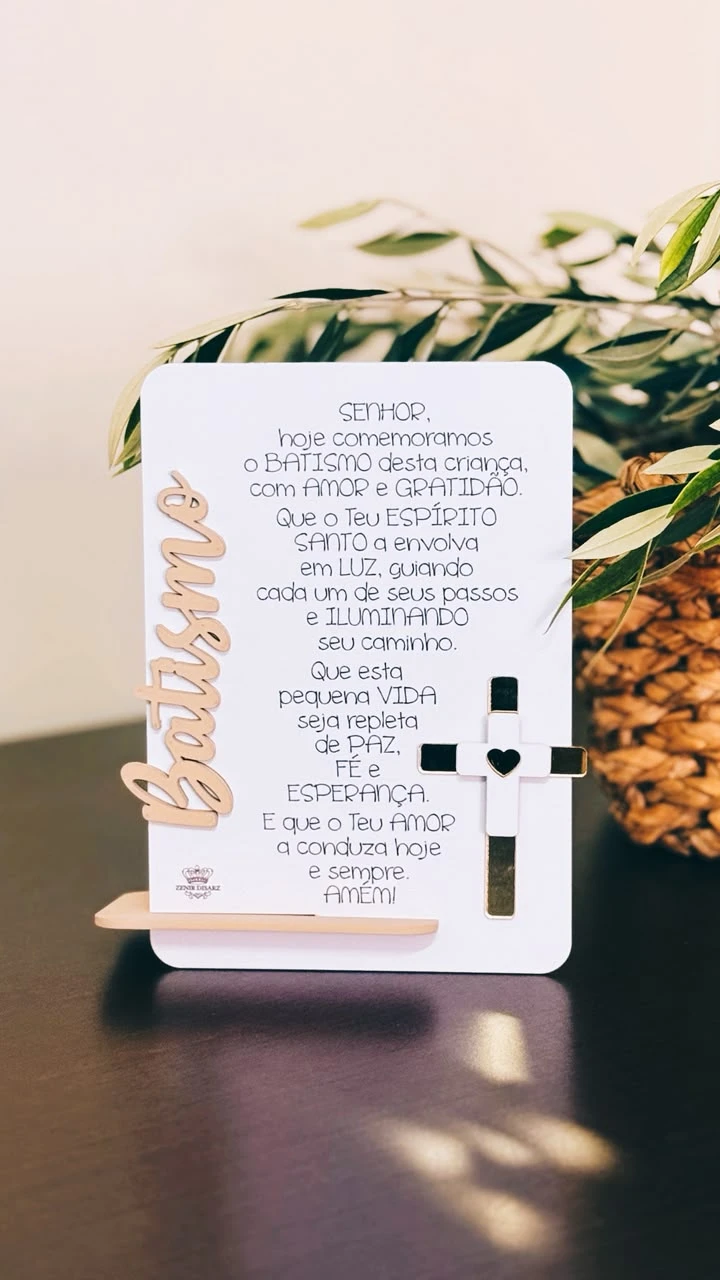 Batismo
SENHOR,
hoje comemoramos
o BATISMO desta criança,
com AMOR e GRATIDÃO.
Que o Teu ESPÍRITO
SANTO a envolva
em LUZ, guiando
cada um de seus passos
e ILUMINANDO
seu caminho.
Que esta
pequena VIDA
seja repleta
de PAZ,
FÉ e
ESPERANÇA.
E que o Teu AMOR
a conduza hoje
e sempre.
AMÉM!
ZENIR DISARZ